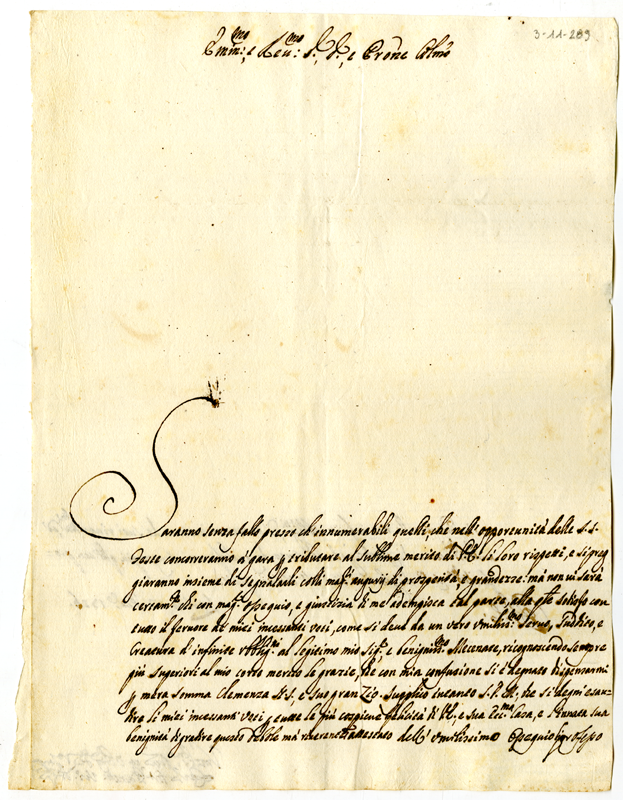 3-11-289
Emm:mo e Reu:mo Sr., Sr., e Prone Colmo
Saranno senza fallo presso ch'innumerabili quelli, che nell'opportunità delle S.S.
Feste concorreranno à gara p tributare al sublime merito di V.E. li loro rispetti, e si preg
giaranno insieme di segnalarli colli magri augurij di prosperità e grandezze: mà non vi sarà
certamte chi con magr. ossequio, e giustizia di me adempisca tal parte, alla qle sodisfo con
tutto il feruore de miei incessanti voti, come si deue da un vero vmilissmo Seruo, Suddito, e
Creatura d'infinite obbligni al legitimo mio Sigre e benignissmo Mecenate, riconoscendo sempre
più superiori al mio corto merito le grazie, che con mia confusione si è degnato dispensarmi
p mera somma Clemenza di S. e suo gran Zio. Supplico intanto S.V.E. che si degni esau-
dire li miei incessanti voti p tutte le più compiute felicità di V.E. e sua Ecc:ma Casa, e l'innata sua
benignità di gradire questo debole mà riuerente attestato dell'vmilissimo Ossequio